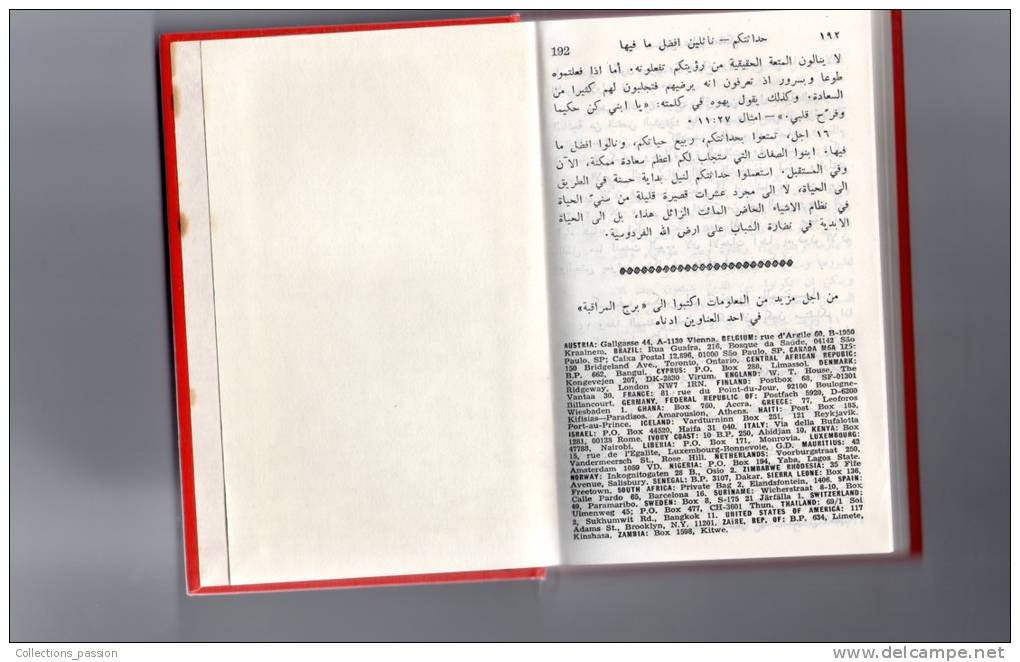 192 حداثتكم — نائلين افضل ما فيها ١٩٢
لا ينالون المتعة الحقيقية من رؤيتكم تفعلونه. أما اذا فعلتموه
طوعا وبسرور اذ تعرفون انه يرضيهم فتجلبون لهم كثيرا من
السعادة. وكذلك يقول يهوه في كلمته: «يا ابني كن حكيما
وفرّح قلبي.» — امثال ٢٧:١١.
١٦ اجل، تمتعوا بحداثتكم، ربيع حياتكم، ونالوا افضل ما
فيها. ابنوا الصفات التي ستجلب لكم اعظم سعادة ممكنة، الآن
وفي المستقبل. استعملوا حداثتكم لنيل بداية حسنة في الطريق
الى الحياة، لا الى مجرد عشرات قصيرة قليلة من سنيّ الحياة
في نظام الاشياء الحاضر المائت الزائل هذا، بل الى الحياة
الابدية في نضارة الشباب على ارض الله الفردوسية.
من اجل مزيد من المعلومات اكتبوا الى «برج المراقبة»
في احد العناوين ادناه
AUSTRIA: Gallgasse 44, A-1130 Vienna. BELGIUM: rue d'Argile 60, B-1950
Kraainem. BRAZIL: Rua Guaíra, 216, Bosque da Saúde, 04142 São
Paulo, SP; Caixa Postal 12.896, 01000 São Paulo, SP. CANADA M6A 1Z5:
150 Bridgeland Ave., Toronto, Ontario. CENTRAL AFRICAN REPUBLIC:
B.P. 662, Bangui. CYPRUS: P.O. Box 288, Limassol. DENMARK:
Kongevejen 207, DK-2830 Virum. ENGLAND: W. T. House, The
Ridgeway, London NW7 1RN. FINLAND: Postbox 68, SF-01301
Vantaa 30. FRANCE: 81 rue du Point-du-Jour, 92100 Boulogne-
Billancourt. GERMANY, FEDERAL REPUBLIC OF: Postfach 5920, D-6200
Wiesbaden 1. GHANA: Box 760, Accra. GREECE: 77, Leoforos
Kifisias—Paradisos, Amarousion, Athens. HAITI: Post Box 185,
Port-au-Prince. ICELAND: Vardturninn Box 251, 121 Reykjavik.
ISRAEL: P.O. Box 44520, Haifa 31 040. ITALY: Via della Bufalotta
1281, 00138 Rome. IVORY COAST: 10 B.P. 250, Abidjan 10. KENYA: Box
47788, Nairobi. LIBERIA: P.O. Box 171, Monrovia. LUXEMBOURG:
15, rue de l'Egalite, Luxembourg-Bonnevoie, G.D. MAURITIUS: 42
Vandermeersch St., Rose Hill. NETHERLANDS: Voorburgstraat 250,
Amsterdam 1059 VD. NIGERIA: P.O. Box 194, Yaba, Lagos State.
NORWAY: Inkognitogaten 28 B., Oslo 2. ZIMBABWE RHODESIA: 35 Fife
Avenue, Salisbury. SENEGAL: B.P. 3107, Dakar. SIERRA LEONE: Box 136,
Freetown. SOUTH AFRICA: Private Bag 2, Elandsfontein, 1406. SPAIN:
Calle Pardo 65, Barcelona 16. SURINAME: Wicherstraat 8-10, Box
49, Paramaribo. SWEDEN: Box 8, S-175 21 Järfälla 1. SWITZERLAND:
Ulmenweg 45; P.O. Box 477, CH-3601 Thun. THAILAND: 69/1 Soi
2, Sukhumwit Rd., Bangkok 11. UNITED STATES OF AMERICA: 117
Adams St., Brooklyn, N.Y. 11201. ZAIRE, REP. OF: B.P. 634, Limete,
Kinshasa. ZAMBIA: Box 1598, Kitwe.
Collections_passion
www.delcampe.net